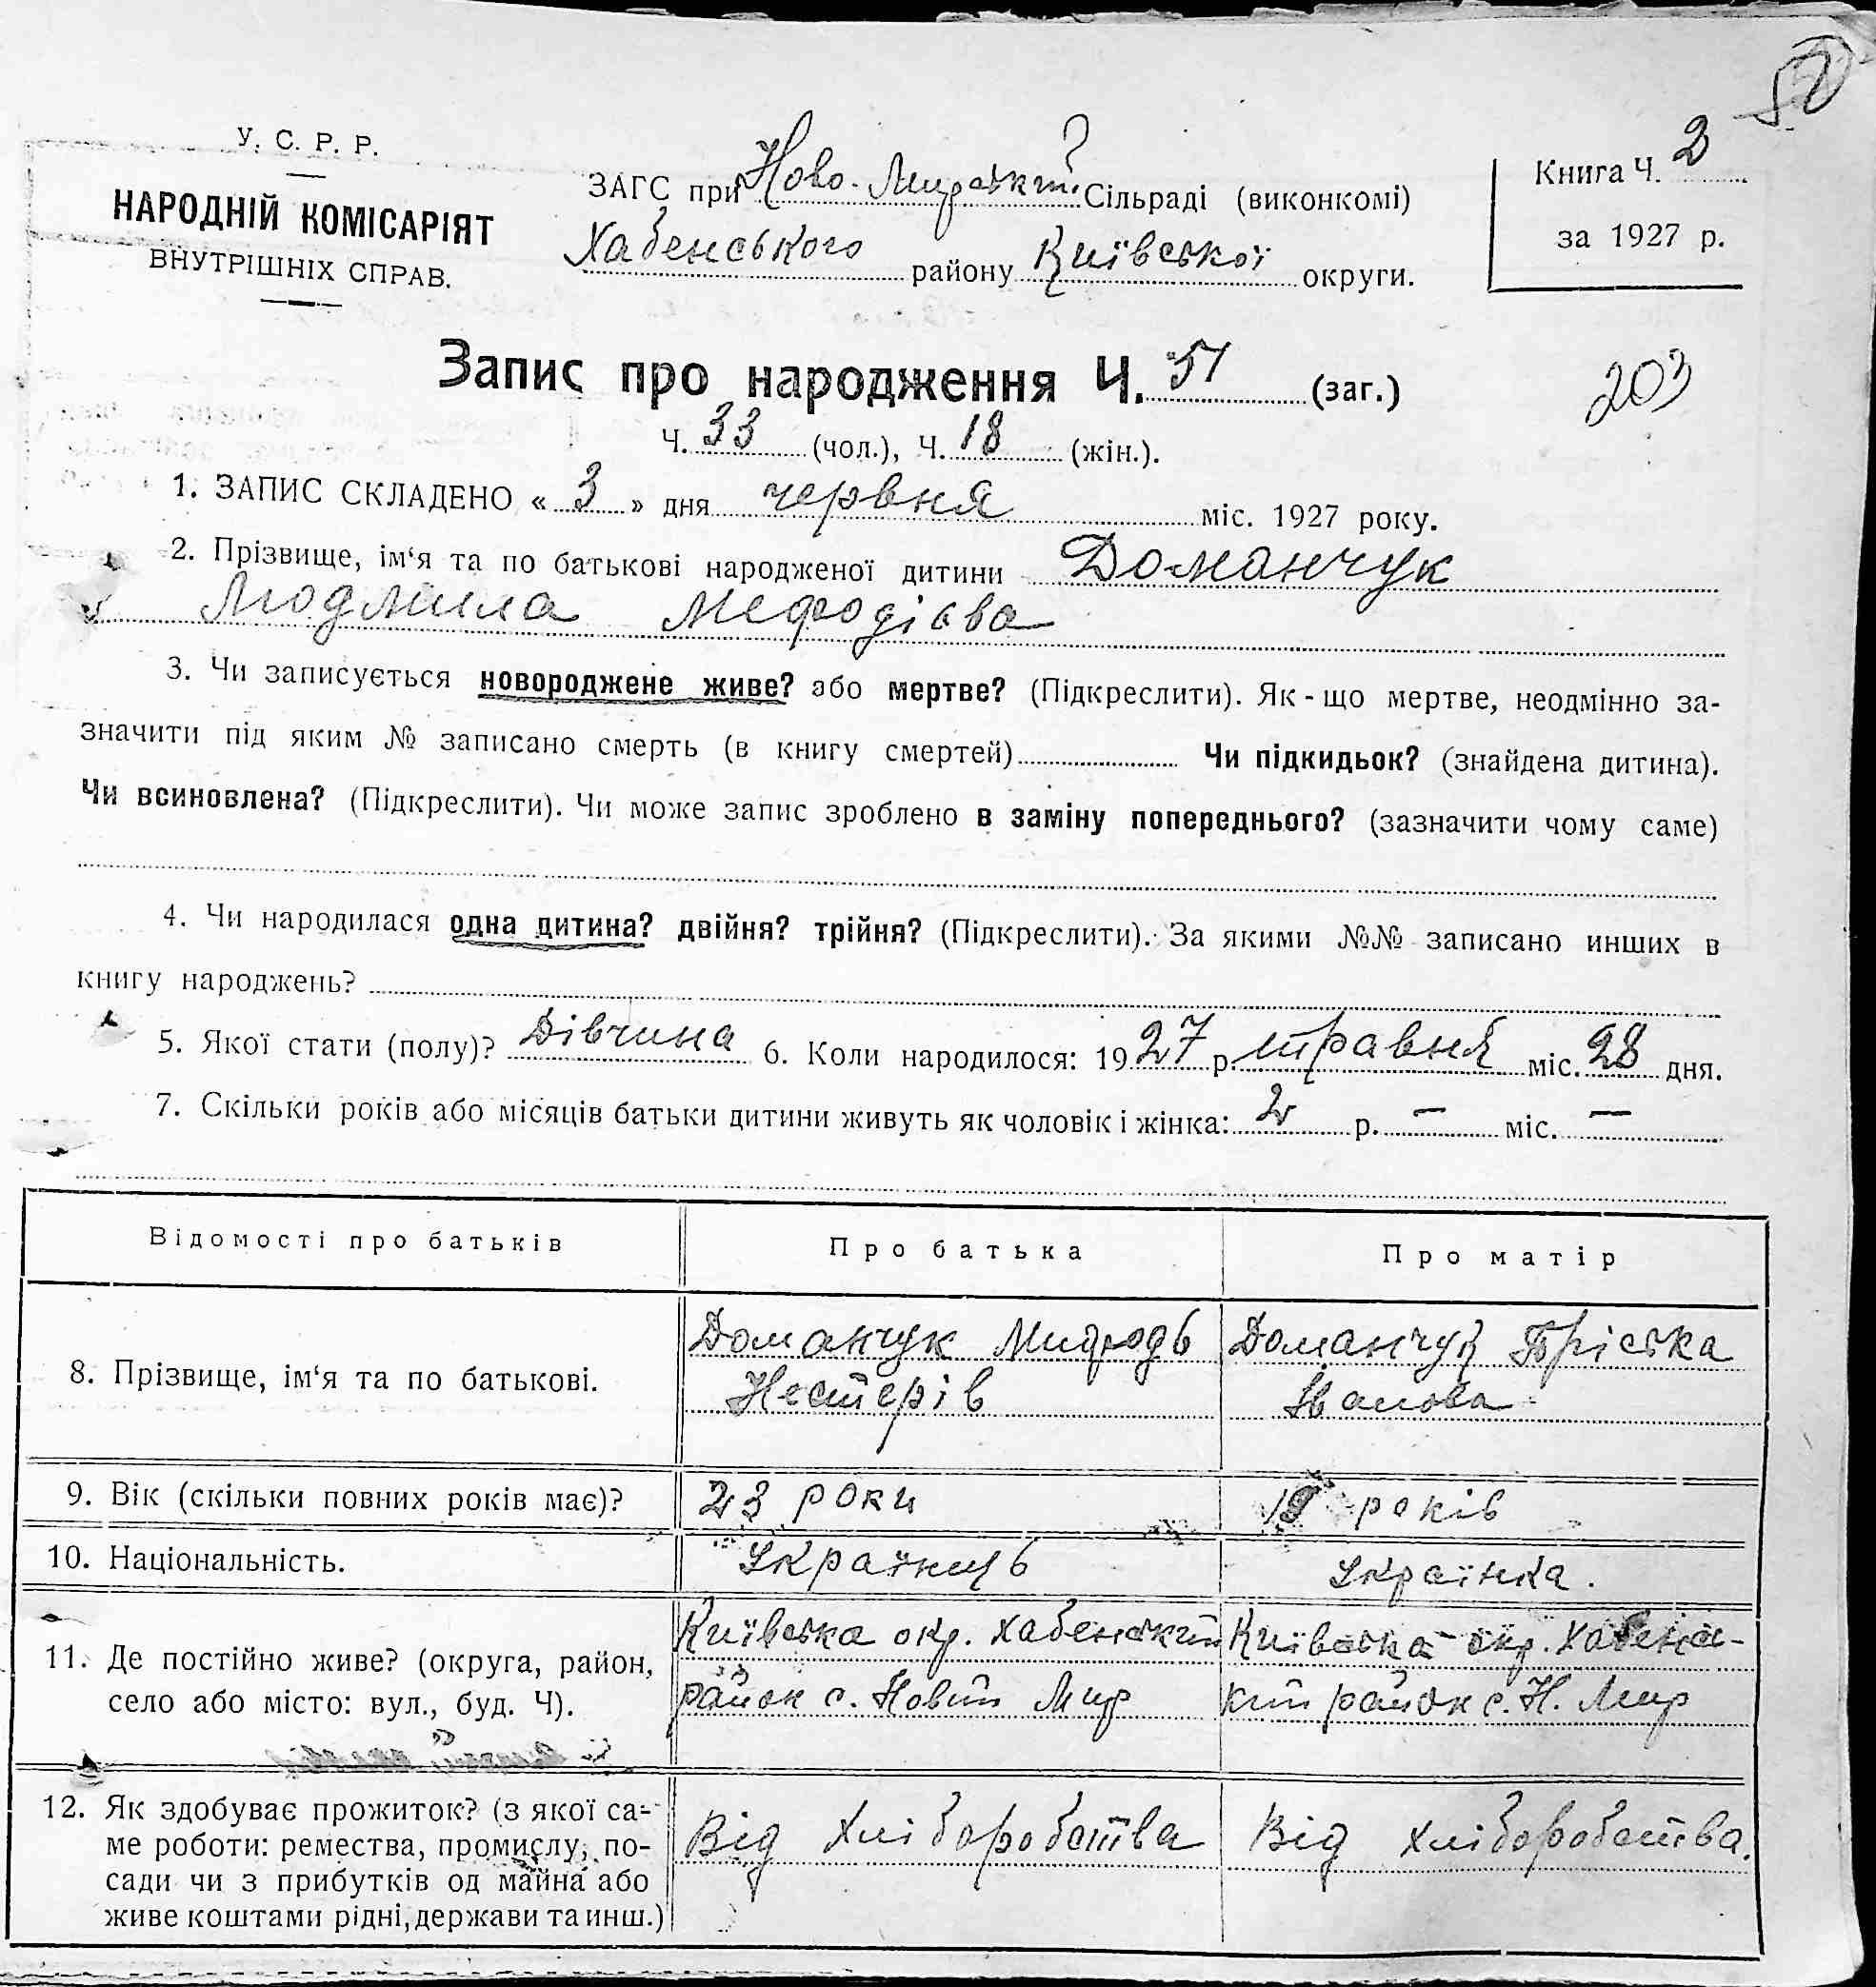 50
У. С. Р. Р.
НАРОДНІЙ КОМІСАРІЯТ
ВНУТРІШНІХ СПРАВ.
ЗАГС при Ново-Мирській Сільраді (виконкомі)
Хабенського району Київської округи.
Книга Ч. 2
за 1927 р.
Запис про народження Ч. 51 (заг.)
203
Ч. 33 (чол.), Ч. 18 (жін.).
1. ЗАПИС СКЛАДЕНО « 3 » дня червня міс. 1927 року.
2. Прізвище, ім‘я та по батькові народженої дитини Доманчук
Людмила Мефодієва
3. Чи записується новороджене живе? або мертве? (Підкреслити). Як-що мертве, неодмінно за-
значити під яким № записано смерть (в книгу смертей) Чи підкидьок? (знайдена дитина).
Чи всиновлена? (Підкреслити). Чи може запис зроблено в заміну попереднього? (зазначити чому саме)
4. Чи народилася одна дитина? двійня? трійня? (Підкреслити). За якими №№ записано инших в
книгу народжень?
5. Якої стати (полу)? Дівчина 6. Коли народилося: 1927 р. травня міс. 28 дня.
7. Скільки років або місяців батьки дитини живуть як чоловік і жінка: 2 р. — міс. —
Відомості про батьків
Про батька
Про матір
8. Прізвище, ім‘я та по батькові.
Доманчук Мифодь
Нестерів
Доманчук Пріська
Іванова
9. Вік (скільки повних років має)?
23 роки
19 років
10. Національність.
Українець
Українка.
11. Де постійно живе? (округа, район,
село або місто: вул., буд. Ч).
Київська окр. Хабенський
район с. Новий Мир
Київська окр. Хабенсь-
кий район с. Н. Мир
12. Як здобуває прожиток? (з якої са-
ме роботи: ремества, промислу, по-
сади чи з прибутків од майна або
живе коштами рідні, держави та инш.)
Від хліборобства
Від хліборобства.